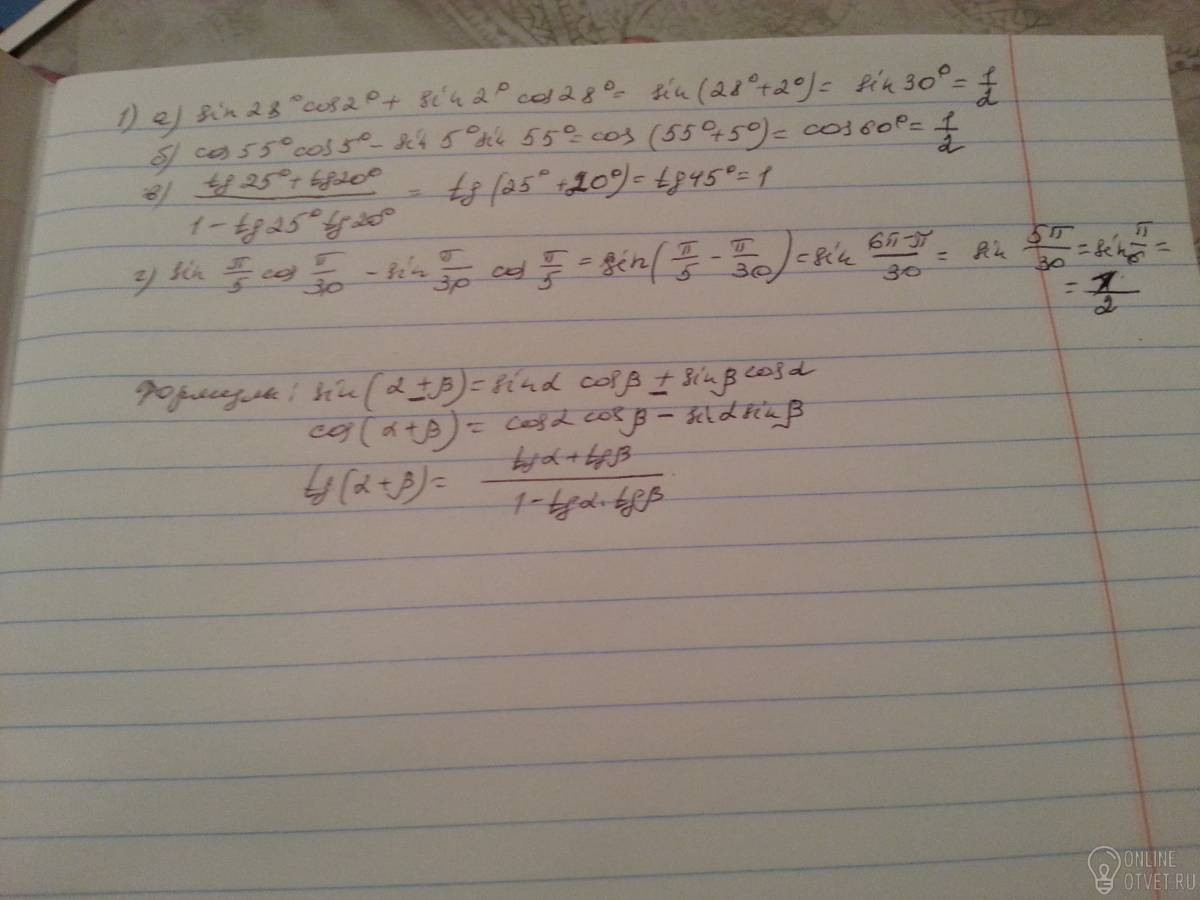 1) а) sin 28° cos 2° + sin 2° cos 28° = sin (28° + 2°) = sin 30° = 1/2
б) cos 55° cos 5° - sin 5° sin 55° = cos (55° + 5°) = cos 60° = 1/2
в) (tg 25° + tg 20°)/(1 - tg 25° tg 20°) = tg (25° + 20°) = tg 45° = 1
г) sin π/5 cos π/30 - sin π/30 cos π/5 = sin(π/5 - π/30) = sin (6π-π)/30 = sin 5π/30 = sin π/6 =
= 1/2
Формулы: sin(α ± β) = sin α cos β ± sin β cos α
cos(α + β) = cos α cos β - sin α sin β
tg(α + β) = (tg α + tg β)/(1 - tg α · tg β)
ONLINE
OTVET.RU